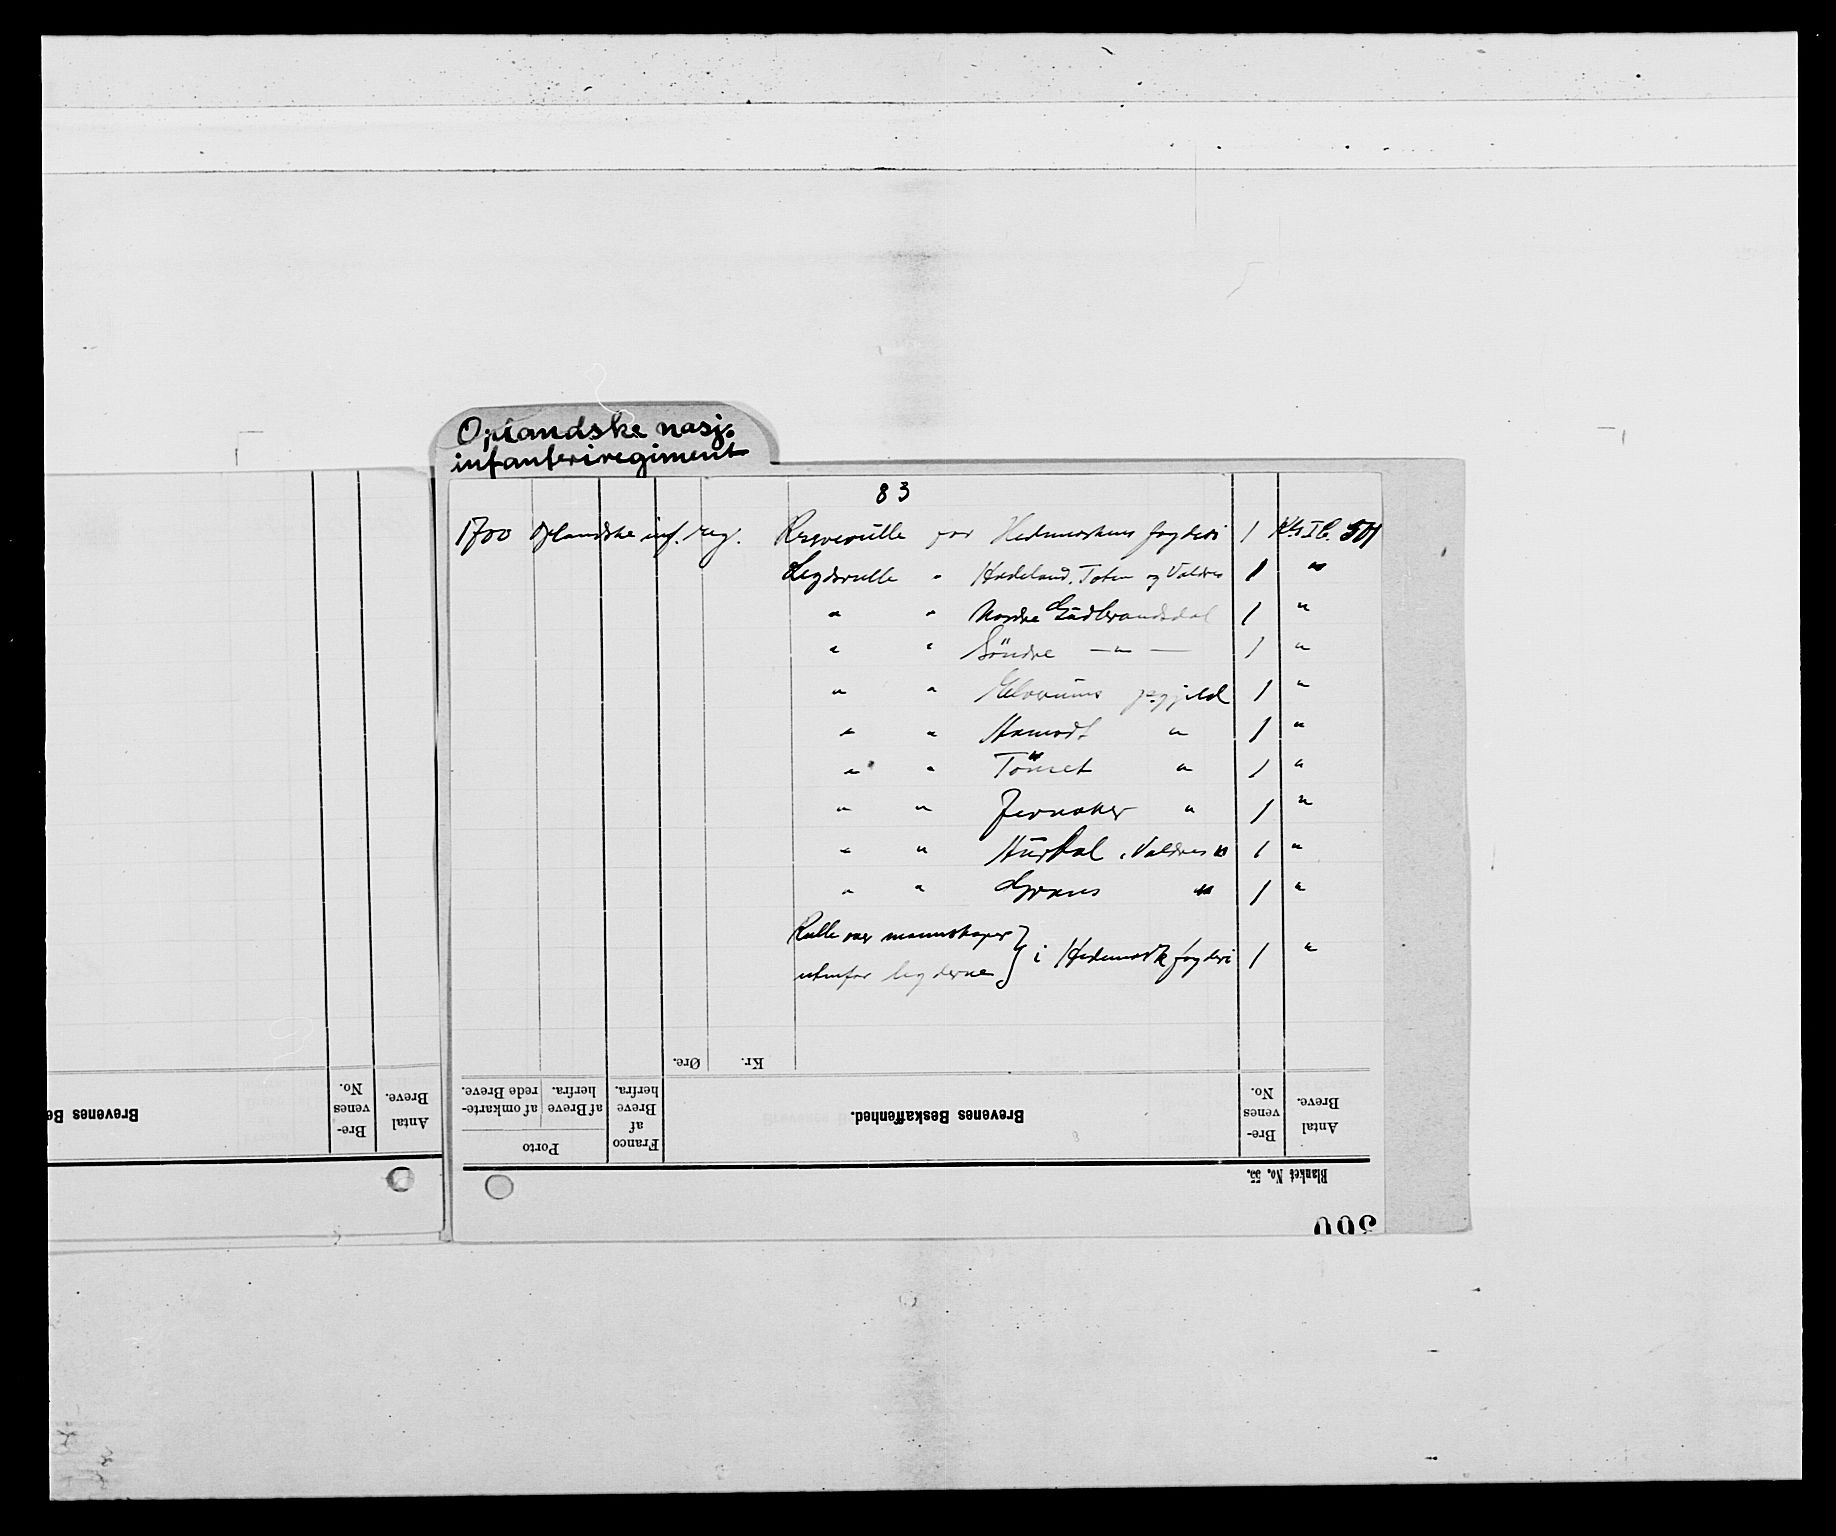 Oplandske nasj.
infanteriregiment
83
1700 Oplandske inf. reg. Reserverulle for Hedemarkens fogderi 1 Kk I C. 501
Legdsrulle " Hadeland, Toten og Valdres 1 "
" " Nordre Gudbrandsdal 1 "
" " Söndre —"— 1 "
" " Elverums prgjeld 1 "
" " Aamodt " 1 "
" " Tönset " 1 "
" " Jevnaker " 1 "
" " Aurdal i Valdres " 1 "
" " Grans " 1 "
Rulle over mannskaper
utenfor legderne } i Hedemark fogderi 1 "
Kr. Øre.
Antal Breve.
Brevenes No.
Brevenes Beskaffenhed.
Franco af Breve herfra.
Porto
af Breve herfra.
af omkarterede Breve.
Blanket No. 55.
500
Antal Breve.
Brevenes No.
Brevenes Be